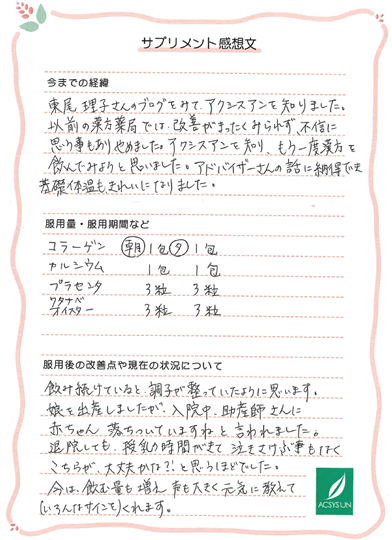 サプリメント感想文
今までの経緯
東尾 理子さんのブログをみて、アクシスアンを知りました。
以前の漢方薬局では、改善がまったくみられず、不信に
思う事もありやめました。アクシスアンを知り、もう一度漢方を
飲んでみようと思いました。アドバイザーさんの話に納得でき
基礎体温もきれいになりました。
服用量・服用期間など
コラーゲン 朝 1包 夕 1包
カルシウム 1包 1包
プラセンタ 3粒 3粒
ワタナベ
オイスター 3粒 3粒
服用後の改善点や現在の状況について
飲み続けていると、調子が整っていたように思います。
娘を出産しましたが、入院中、助産師さんに
赤ちゃん、落ちついていますねと言われました。
退院しても、授乳の時間がきて 泣きさけぶ事もなく
こちらが、大丈夫かな?!と思うほどでした。
今は、飲む量も増え 声も大きく元気に教えて
(いろんなサインを)くれます。
ACSYS UN